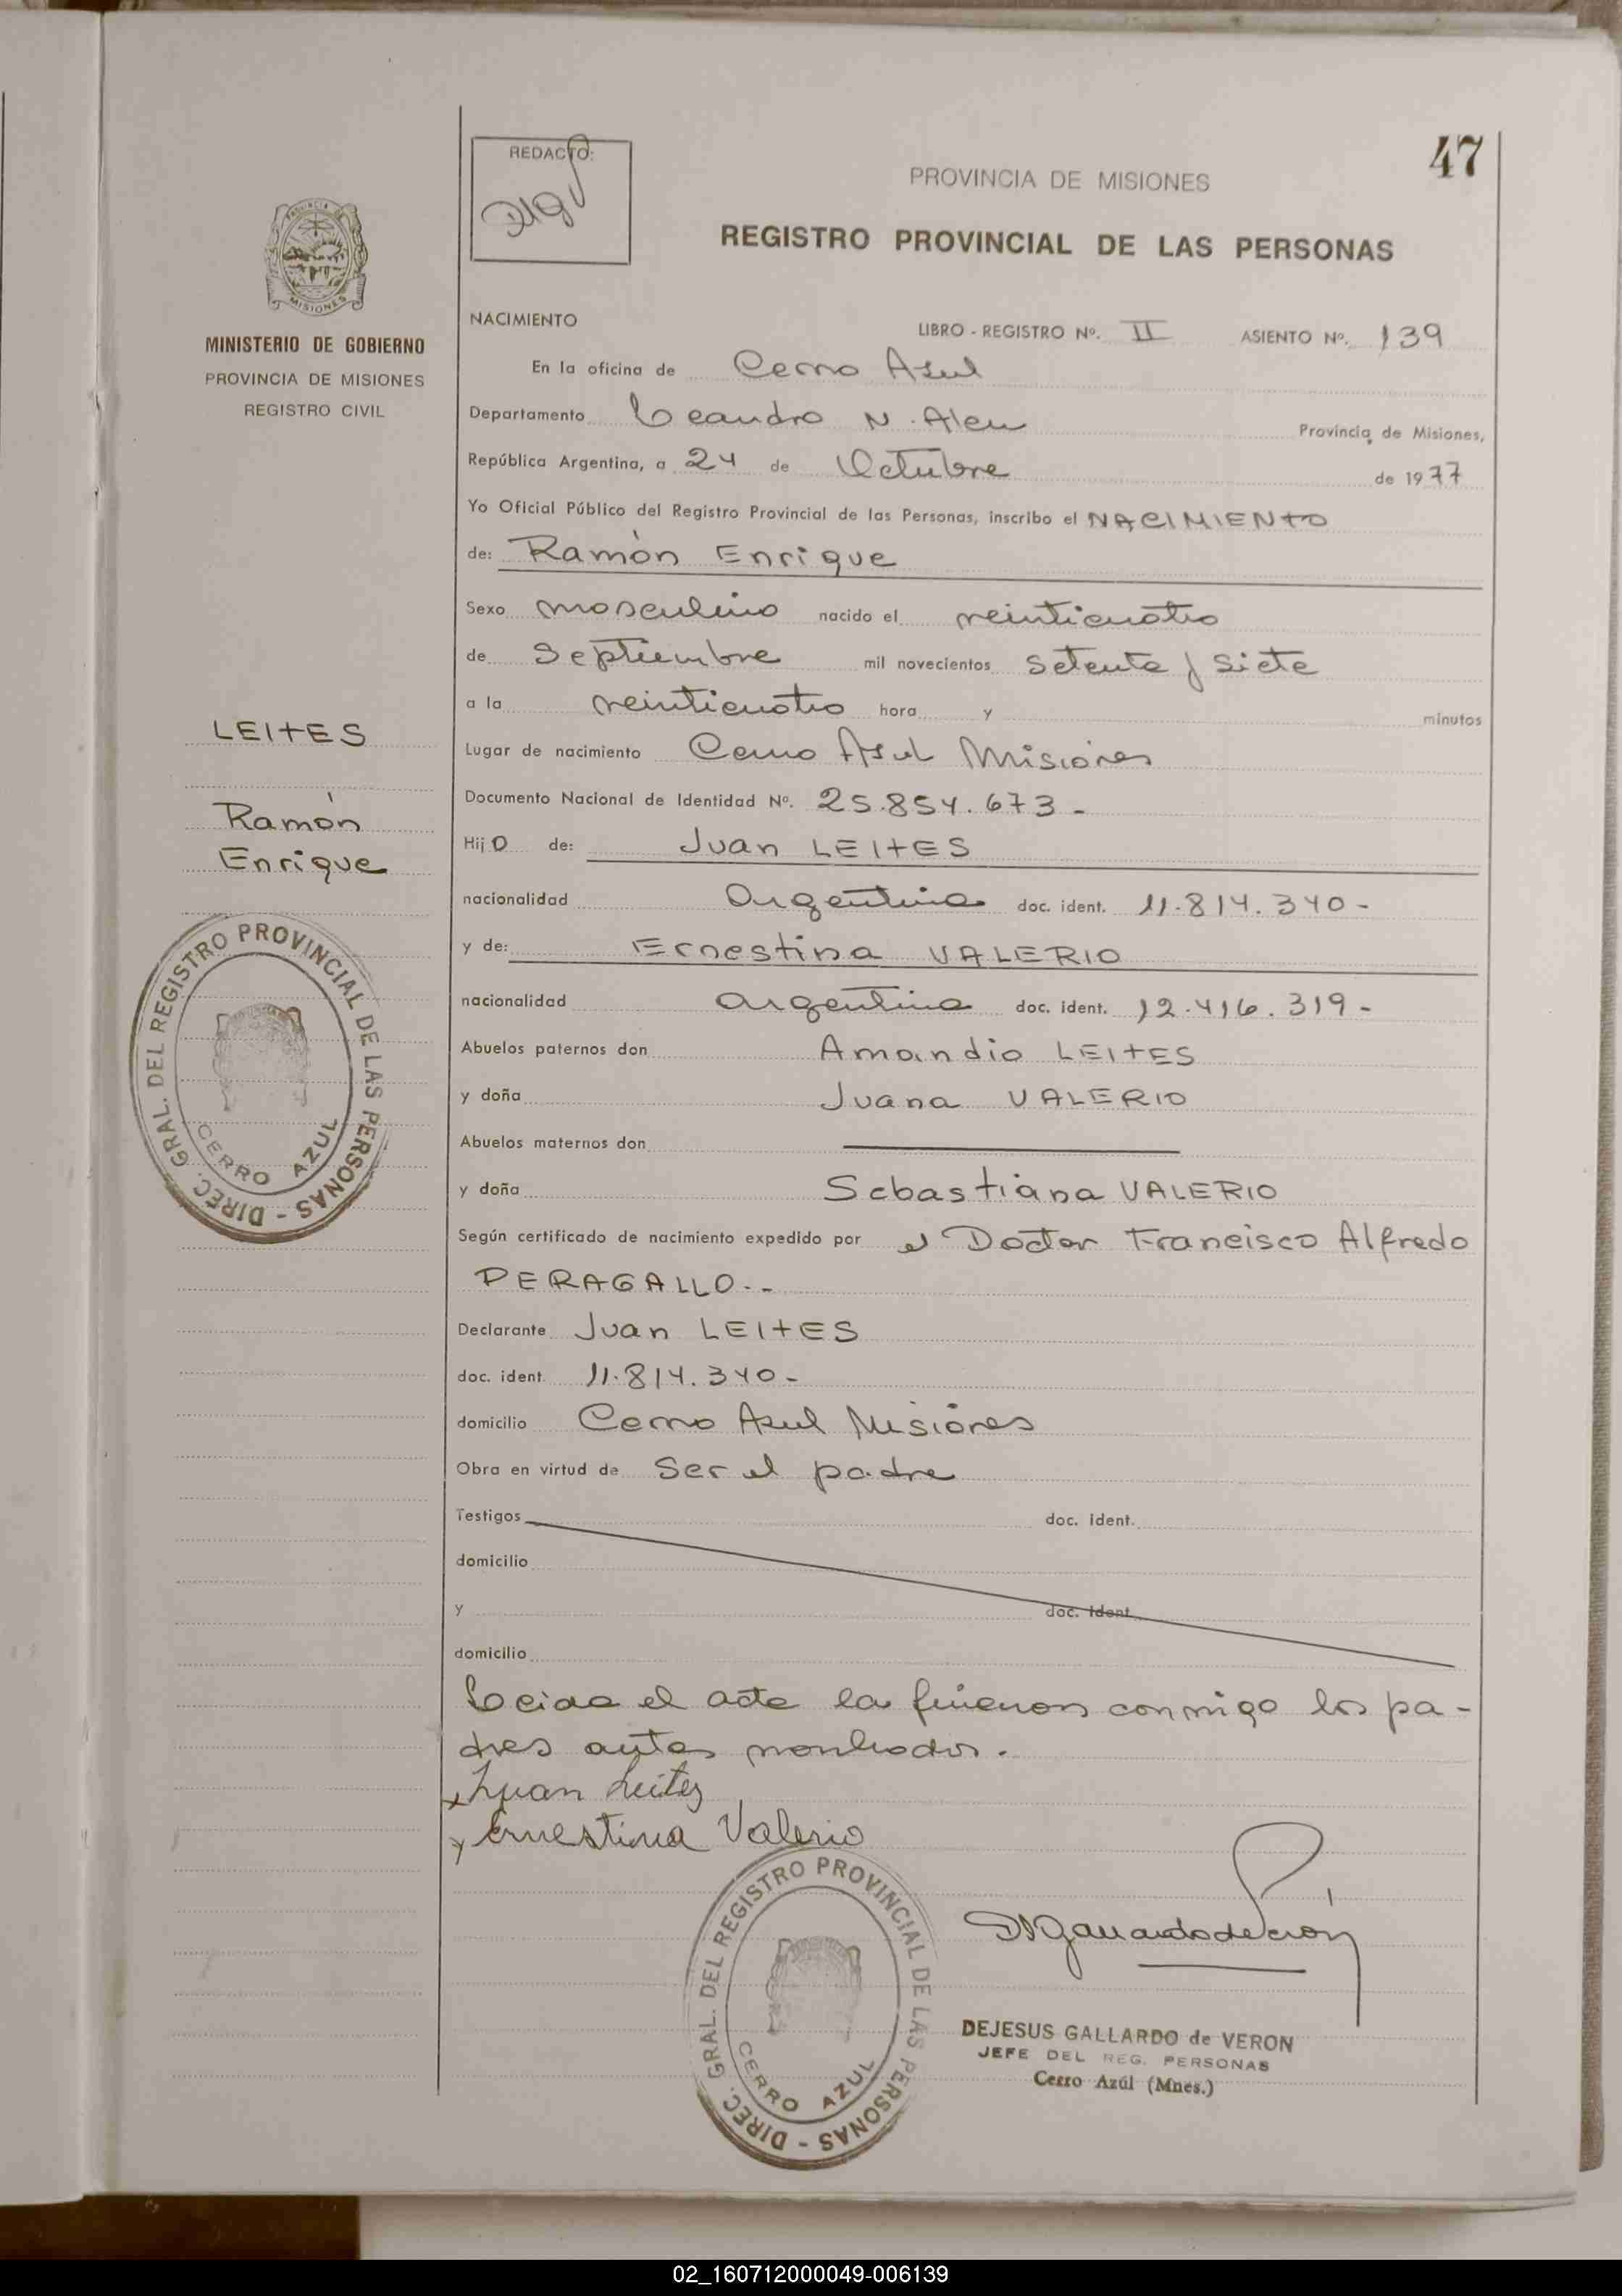 47
REDACTO:
PROVINCIA DE MISIONES
REGISTRO PROVINCIAL DE LAS PERSONAS
PROVINCIA DE
MISIONES
MINISTERIO DE GOBIERNO
PROVINCIA DE MISIONES
REGISTRO CIVIL
NACIMIENTO
LIBRO - REGISTRO Nº. II ASIENTO Nº. 139
En la oficina de Cerro Asul
Departamento Leandro N. Alem Provincia de Misiones,
República Argentina, a 24 de Octubre de 1977
Yo Oficial Público del Registro Provincial de las Personas, inscribo el NACIMIENTO
de: Ramón Enrique
Sexo masculino nacido el veinticuatro
de Septiembre mil novecientos setenta y siete
a la veinticuatro hora y minutos
Lugar de nacimiento Cerro Asul Misiones
Documento Nacional de Identidad Nº. 25.854.673-
Hijo de: Juan LEITES
nacionalidad Argentina doc. ident. 11.814.340-
y de: Ernestina VALERIO
nacionalidad argentina doc. ident. 12.416.319-
Abuelos paternos don Amandio LEITES
y doña Juana VALERIO
Abuelos maternos don
y doña Sebastiana VALERIO
Según certificado de nacimiento expedido por el Doctor Francisco Alfredo
PERAGALLO.-
Declarante Juan LEITES
doc. ident. 11.814.340-
domicilio Cerro Asul Misiones
Obra en virtud de ser el padre
Testigos doc. ident.
domicilio
y doc. ident.
domicilio
Leida el acta la firmaron conmigo los pa-
dres antes nombrados.
x Juan Leites
y Ernestina Valerio
DEJESUS GALLARDO de VERON
JEFE DEL REG. PERSONAS
Cerro Azúl (Mnes.)
LEITES
Ramón
Enrique
DIREC. GRAL. DEL REGISTRO PROVINCIAL DE LAS PERSONAS -
CERRO AZUL
DIREC. GRAL. DEL REGISTRO PROVINCIAL DE LAS PERSONAS -
CERRO AZUL
02_160712000049-006139